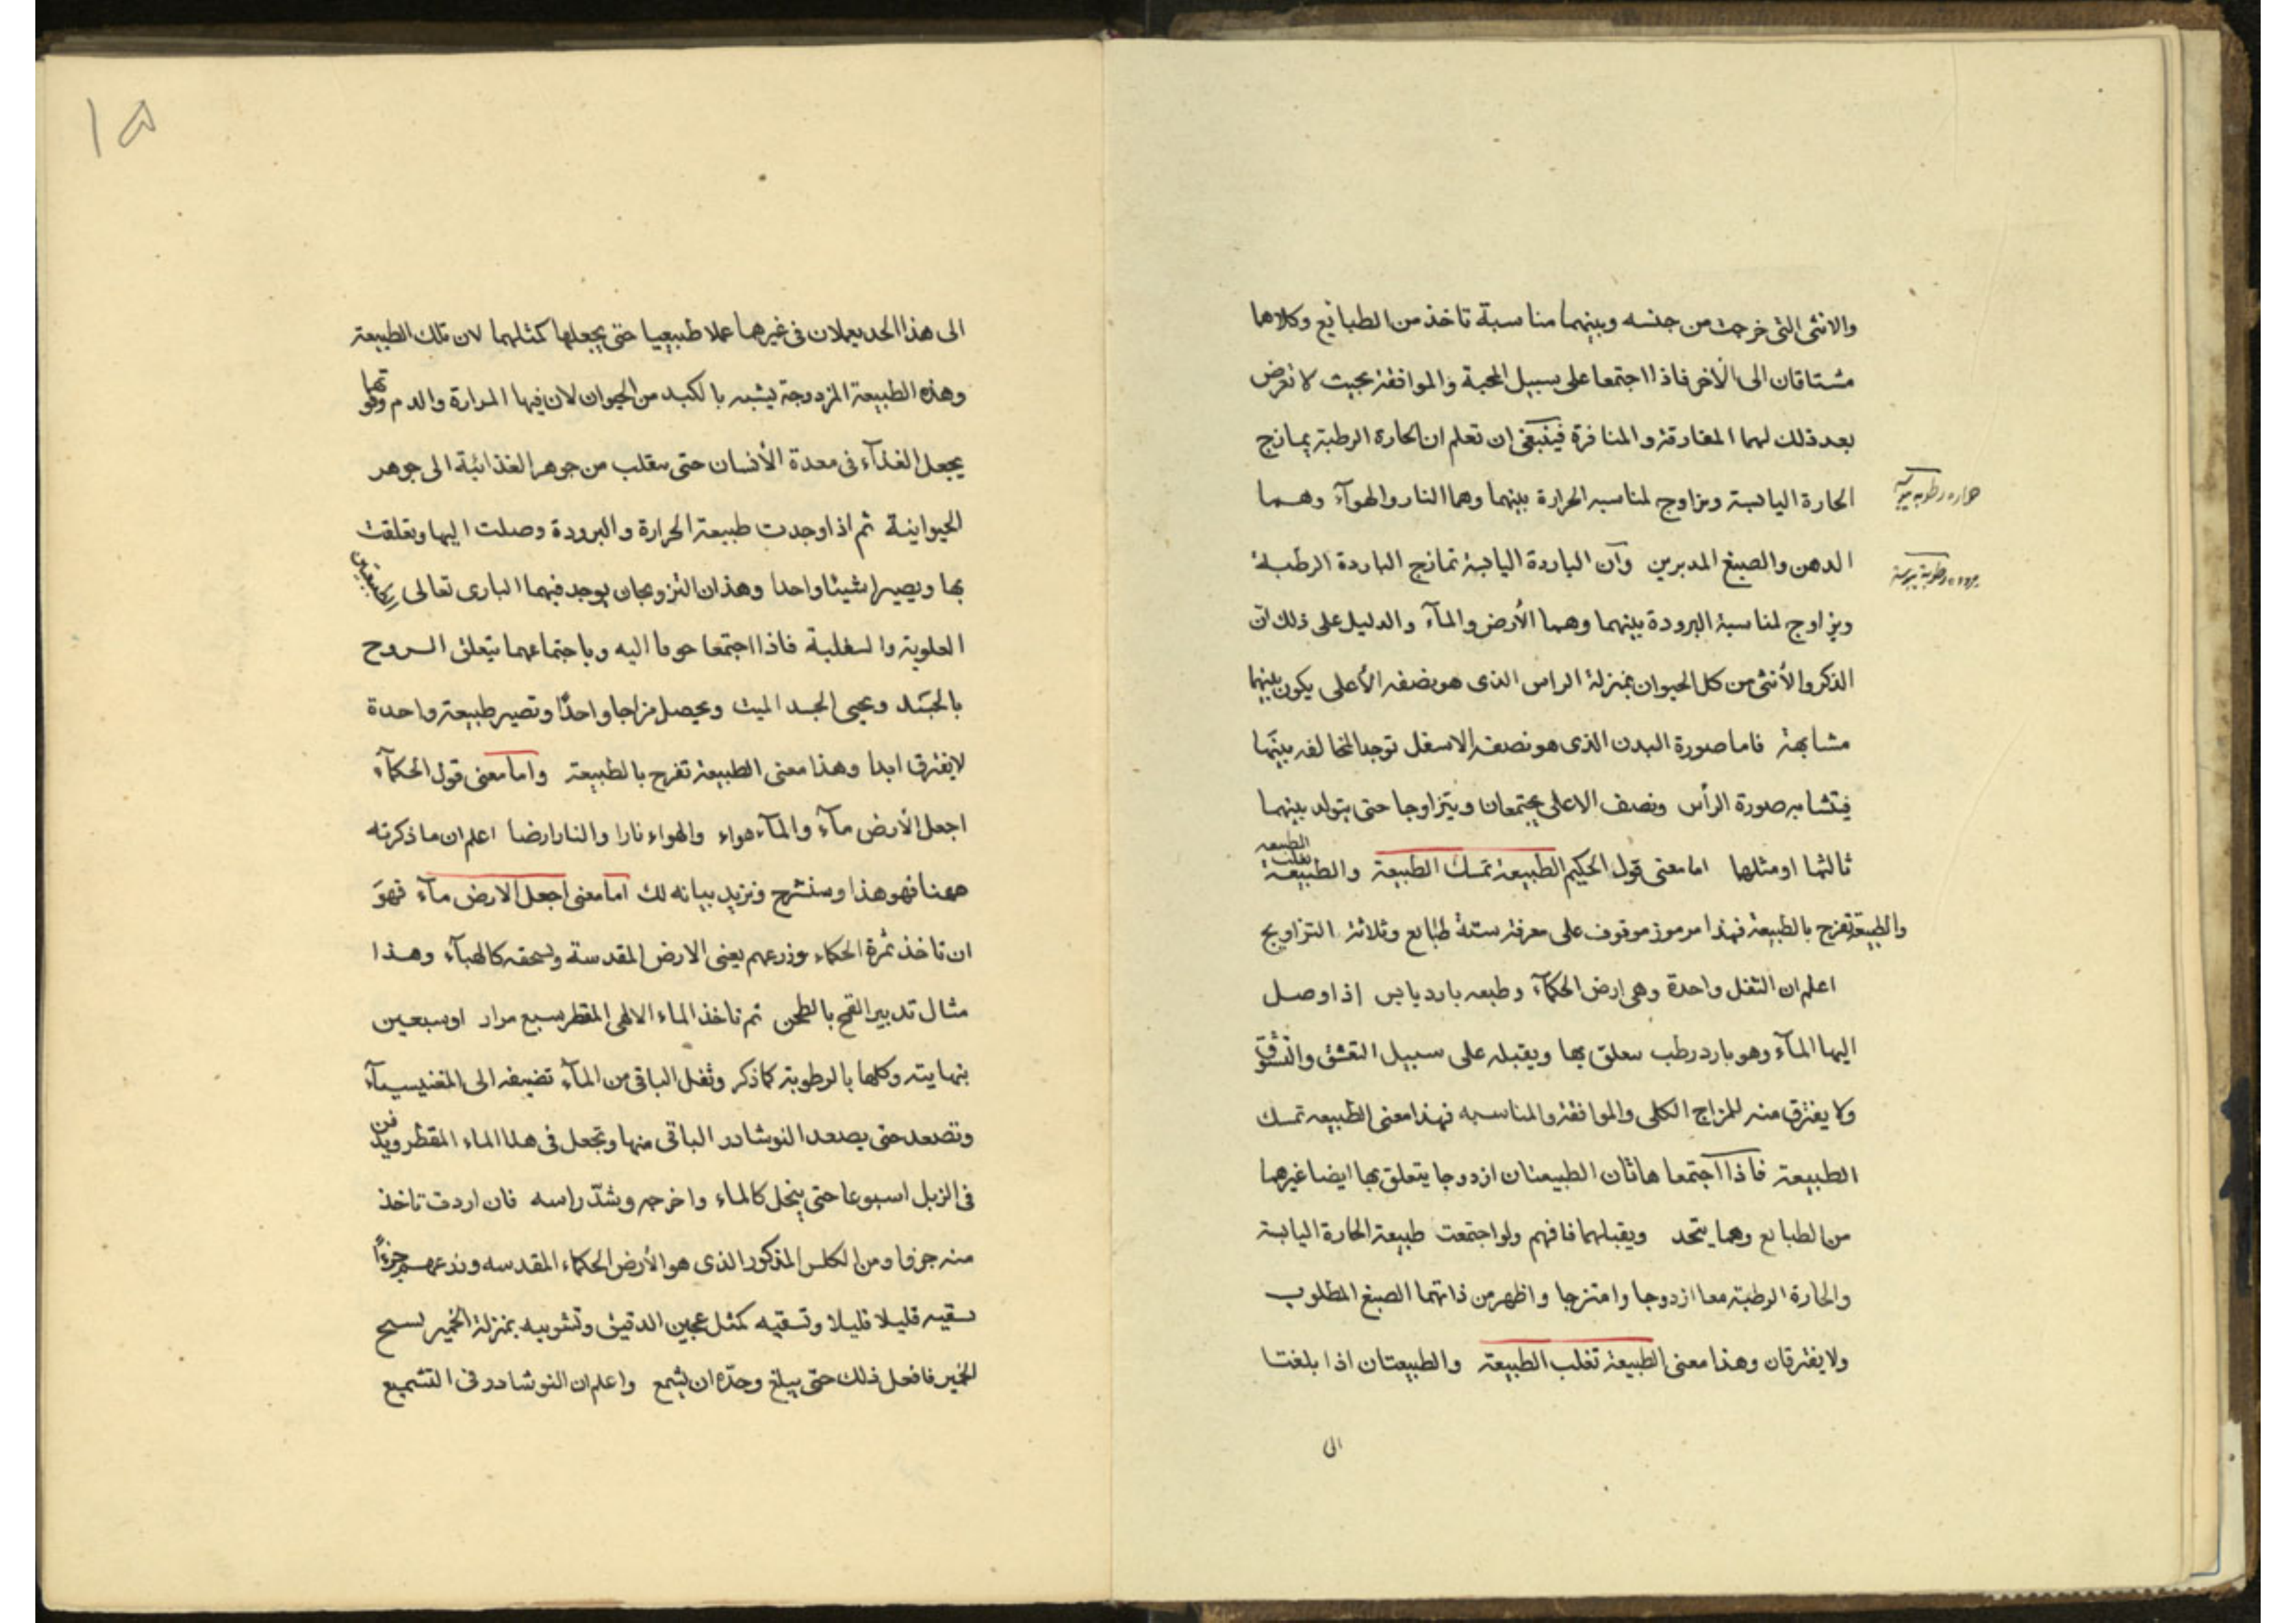 والانثى التى خرجت من جنسه وبينهما مناسبة تاخذ من الطبائع وكلاهما
مشتاقان الى الأخر فاذا اجتمعا على سبيل المحبة والموافقة بحيث لا تعرض
بعد ذلك لهما المفارقة والمنافرة فينبغى ان تعلم ان الحارة الرطبة يمازج
الحارة اليابسة ويزاوج لمناسبه الحرارة بينهما وهما النار والهوآء وهما
الدهن والصبغ المدبرين وان الباردة اليابسة تمازج الباردة الرطبة
ويزاوج لمناسبة البرودة بينهما وهما الأرض والمآء والدليل على ذلك ان
الذكر والأنثى من كل الحيوان بمنزلة الراس الذى هو نصفه الأعلى يكون بينهما
مشابهة فاما صورة البدن الذى هو نصفه الاسفل توجد المخالفه بينهما
فيتشابه صورة الرأس ونصف الاعلى يجتمعان ويتزاوجا حتى يتولد بينهما
ثالثهما او مثلها اما معنى قول الحكيم الطبيعة تمسك الطبيعة والطبيعة تغلب الطبيعه
والطبيعة تفرح بالطبيعة فهذا مرموز موقوف على معرفة ستة طبايع وثلاثة التزاويج
اعلم ان الثفل واحدة وهى ارض الحكمآء وطبعه بارد يابس إذا وصل
اليها المآء وهو بارد رطب معلق بها ويقبله على سبيل التعشق والتشوق
ولا يفترق منه للمزاج الكلى والموافقة والمناسبه فهذا معنى الطبيعه تمسك
الطبيعة فاذا اجتمعا هاتان الطبيعتان ازدوجا يتعلق بها ايضا غيرهما
من الطبايع وهما يتحد ويقبلهما فافهم ولو اجتمعت طبيعة الحارة اليابسة
والحارة الرطبة معا ازدوجا وامتزجا واظهر من ذاتهما الصبغ المطلوب
ولا يفترقان وهذا معنى الطبيعة تغلب الطبيعة والطبيعتان اذا بلغتا
الى
الى هذا الحد يعملان فى غيرهما عملا طبيعيا حتى يجعلها كمثلهما لان تلك الطبيعة
وهذه الطبيعة المزدوجة يشبه بالكبد من الحيوان لان فيها المرارة والدم وقوتها
يجعل الغذآء فى معدة الأنسان حتى ينقلب من جوهر الغذائية الى جوهر
الحيوانية ثم اذا وجدت طبيعة الحرارة والبرودة وصلت اليها وتعلقت
بها ويصيرا شيئا واحدا وهذان التزويجان يوجد فيهما البارى تعالى
العلوية والسفلية فاذا اجتمعا حوما اليه وباجتماعهما يتعلق الروح
بالجسد ويحيى الجسد الميت ويحصل مزاجا واحدًا وتصير طبيعة واحدة
لا يفترق ابدا وهذا معنى الطبيعة تفرح بالطبيعة واما معنى قول الحكمآء
اجعل الأرض مآء والمآء هواء والهواء نارا والنار ارضا اعلم ان ما ذكرته
ههنا فهو هذا وسنشرح ونزيد بيانه لك اما معنى اجعل الارض مآء فهو
ان تاخذ ثمرة الحكماء وزرعهم يعنى الارض المقدسة وتسحقه كالهبآء وهذا
مثال تدبير القمح بالطحن ثم تاخذ الماء الالهى المقطر سبع مرار او سبعين
بنهايته وكلها بالرطوبة كما ذكر وثفل الباقى من المآء تضيفه الى المغنيسيآء
وتصعد حتى يصعد النوشادر الباقى منها وتجعل فى هذا الماء المقطر ويدفن
فى الزبل اسبوعا حتى ينحل كالماء واخرجه وشدّ راسه فان اردت تاخذ
منه جزوا ومن الكلس المذكور الذى هو الأرض الحكماء المقدسه وزرعهم جزءًا
تسقيه قليلا قليلا وتسقيه كمثل عجين الدقيق وتشويه بمنزلة الخمير
الخمير فافعل ذلك حتى يبلغ وحدّه ان يشمع واعلم ان النوشادر فى التشميع